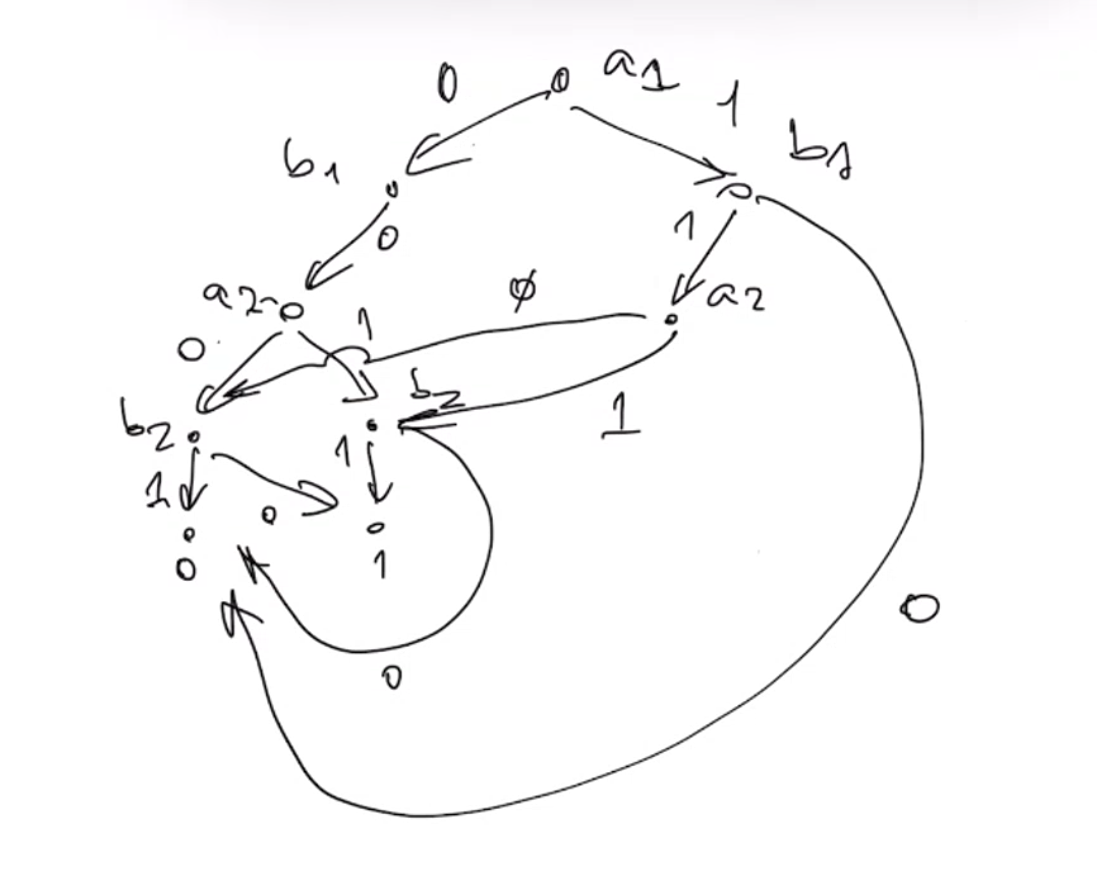 0 a1 1
b1 b1
0 1
a2 ∅ a2
0 1
b2 b2 1
1 1
0
0 1
0
0